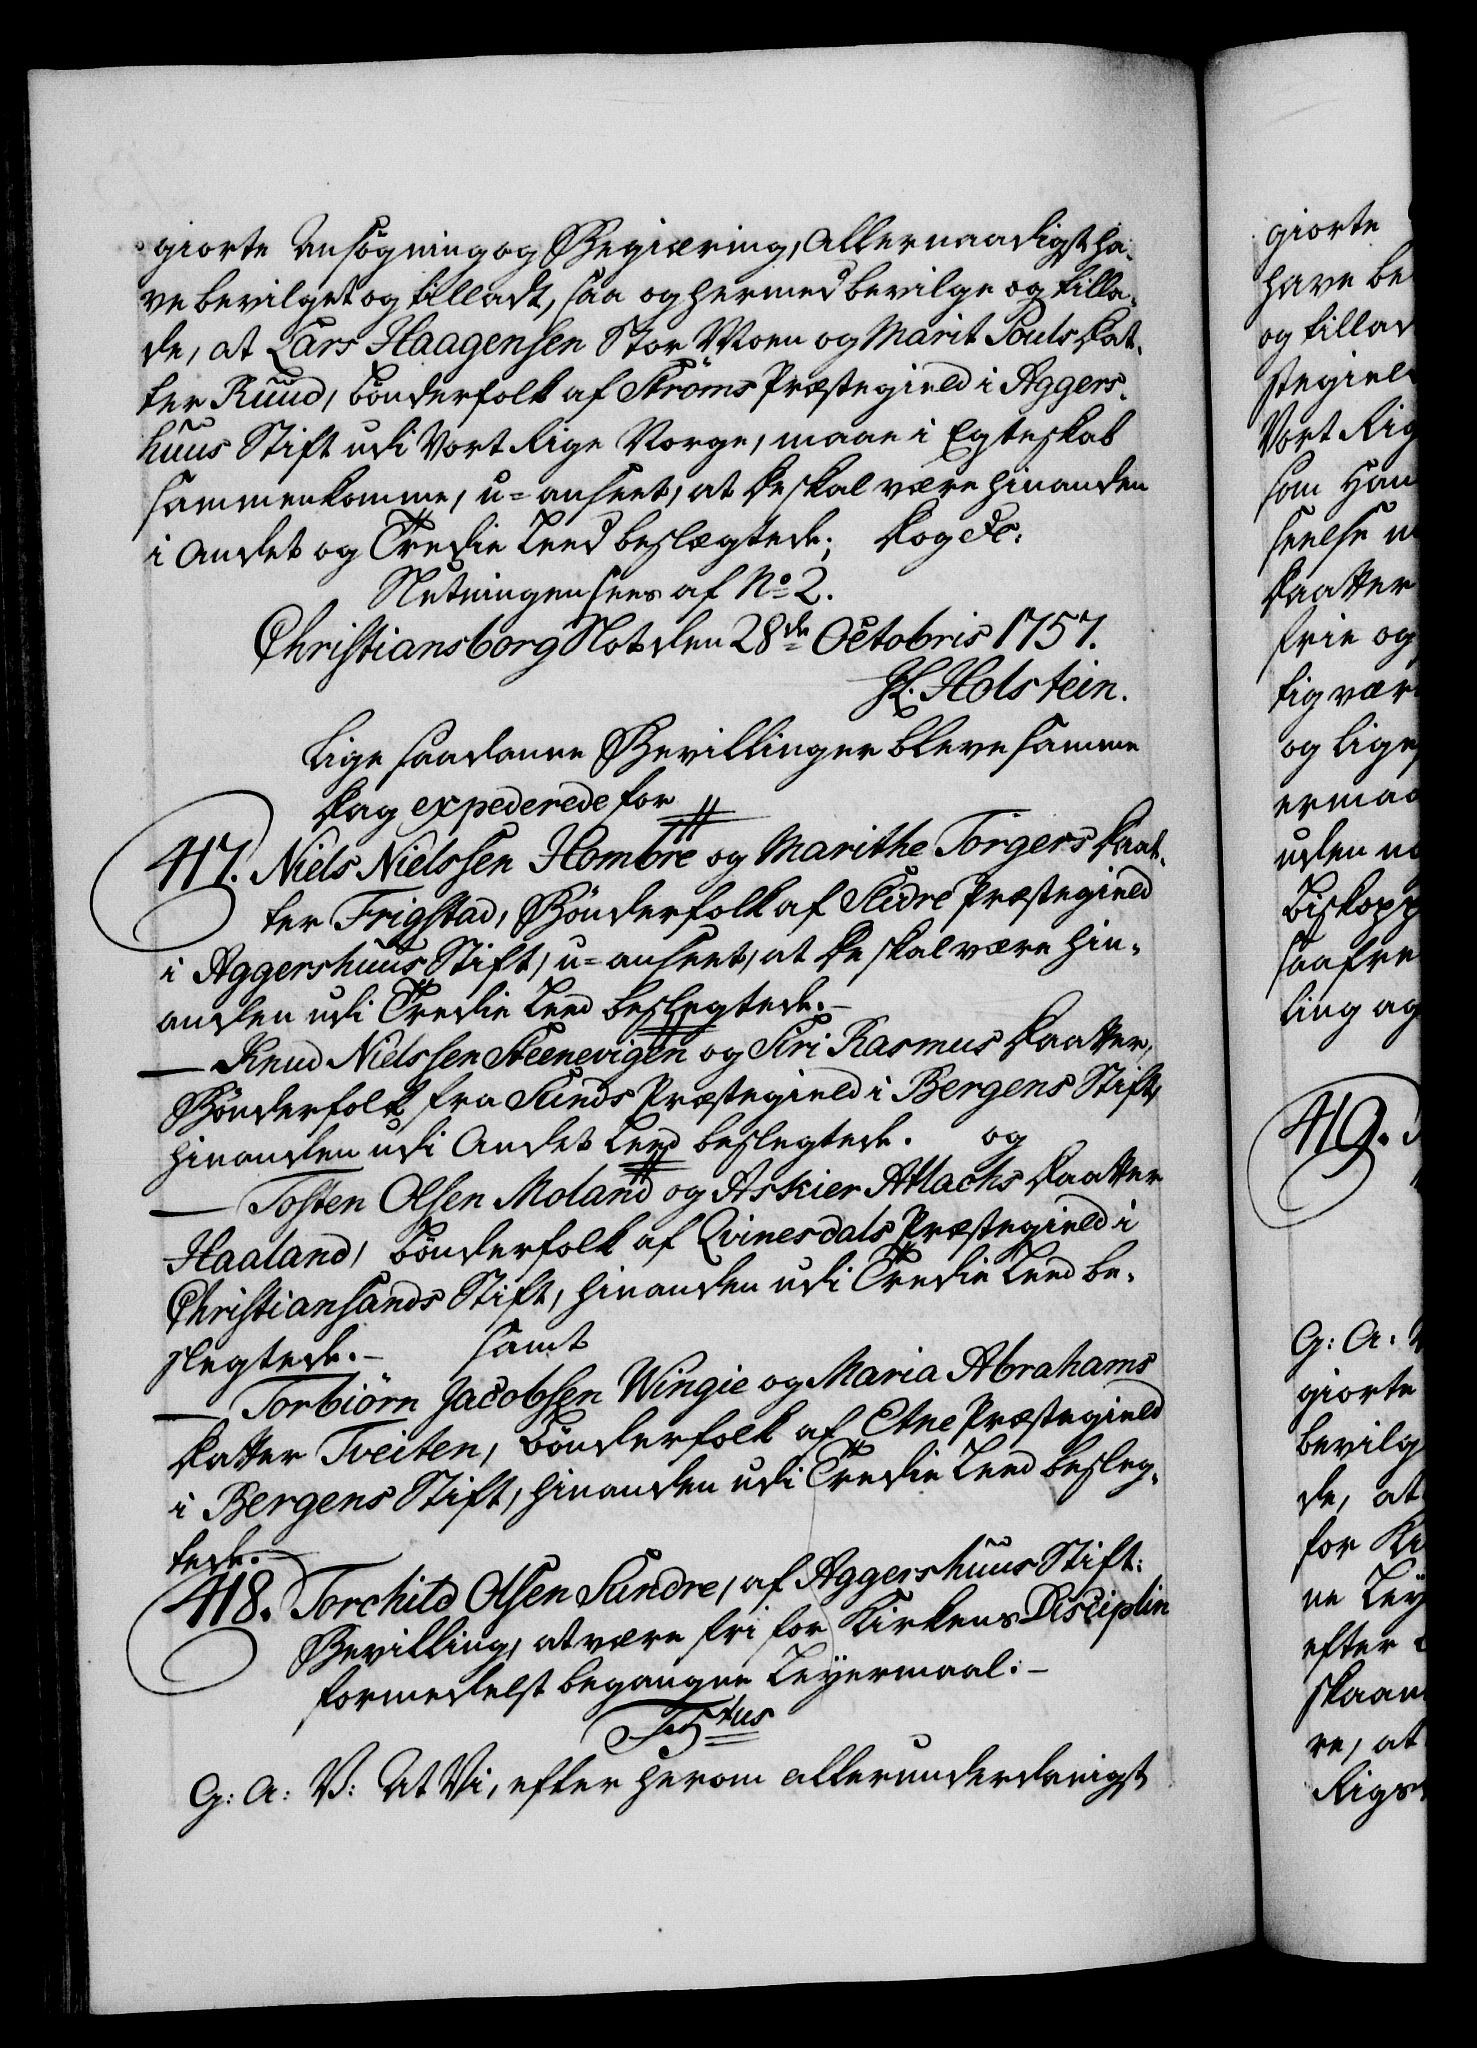 giorte Ansøgning og Begiæring, Allernaadigst ha-
ve bevilget og tilladt, saa og hermed bevilge og tilla-
de, at Lars Haagensen Stor Moen og Marit Pouls Dat-
ter Ruud, Bønderfolk af Strøms Præstegield i Aggers-
huus Stift udi Vort Rige Norge, maae i Egteskab
sammenkomme, u-anseet, at De skal være hinanden
i Andet og Tredie Leed beslægtede; Dog &c:
Slutningen sees af No 2.
Christiansborg Slot den 28de Octobris 1757.
JL. Holstein.
Lige saadanne Bevillinger bleve samme
Dag expederede for
417. Niels Nielssen Hombre og Marithe Torgers Daat-
ter Frigstad, Bønderfolk af Slidre Præstegield
i Aggershuus Stift, u-anseet, at De skal være hin-
anden udi Tredie Leed beslegtede.-
— Knud Nielssen Steenevigen og Siri Rasmus Daatter,
Bønderfolk fra Sunds Præstegield i Bergens Stift,
hinanden udi Andet Leed beslegtede. og
— Tosten Olsen Moland og Askier Atlachs Daatter
Haaland, Bønderfolk af Qvinesdals Præstegield i
Christiansands Stift, hinanden udi Tredie Leed be-
slegtede.- samt
— Torbiørn Jacobsen Wingie og Maria Abrahams
Datter Tveiten, Bønderfolk af Etne Præstegield
i Bergens Stift, hinanden udi Tredie Leed besleg-
tede.-
418. Torchild Olsen Sundre, af Aggershuus Stift:
Bevilling, at være fri for Kirkens Disciplin
formedelst begangne Leyermaal.-
F 5tus
G: A: V: At Vi, efter herom allerunderdanigst
giorte
have be
og tillad
stegiel
Vort Rig
som Han
seelse
Daatter
frie og
tig vær
og lige
ermaa
uden
Biskopp
saafre
ling ag
419.
G: A:
giorte
bevilg
de, at
for Ki
ne Ley
efter
skaan
re, at
Rigs